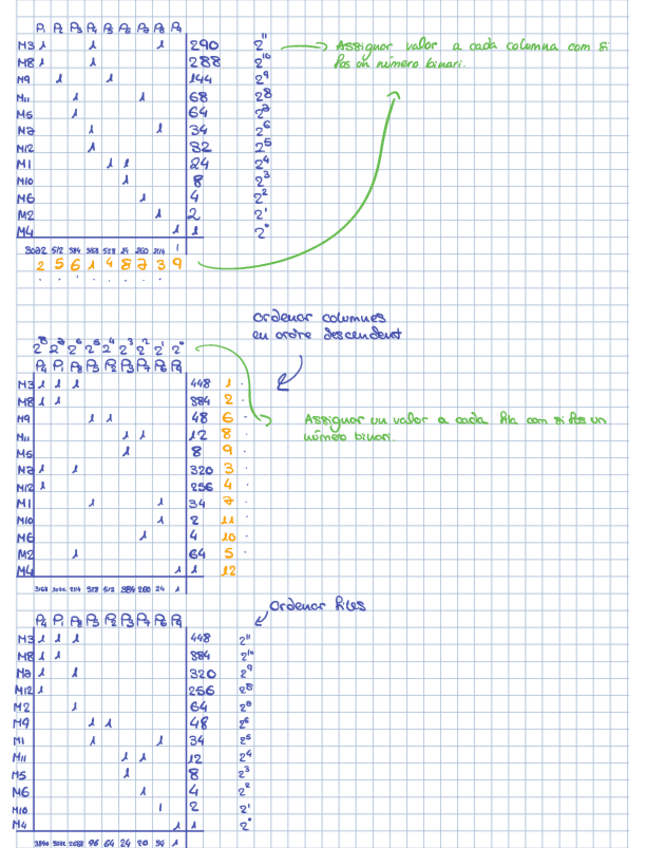 P1 P2 P3 P4 P5 P6 P7 P8 P9
M3 1 1 1 290 2^11 → Assignar valor a cada columna com si
M8 1 1 288 2^10 fos un número binari.
M9 1 1 144 2^9
M11 1 1 68 2^8
M5 1 64 2^7
M7 1 1 34 2^6
M12 1 32 2^5
M1 1 1 24 2^4
M10 1 8 2^3
M6 1 4 2^2
M2 1 2 2^1
M4 1 1 2^0
3072 512 384 3168 528 24 260 2114 1
2 5 6 1 4 8 7 3 9
Ordenar columnes
en ordre descendent
2^8 2^7 2^6 2^5 2^4 2^3 2^2 2^1 2^0
M3 1 1 1 448 1
M8 1 1 384 2
M9 1 1 48 6 Assignar un valor a cada fila com si fos un
M11 1 1 12 8 número binari.
M5 1 8 9
M7 1 1 320 3
M12 1 256 4
M1 1 1 34 7
M10 1 2 11
M6 1 4 10
M2 1 64 5
M4 1 1 12
3168 3072 2114 528 512 384 260 24 1
Ordenar files
M3 1 1 1 448 2^11
M8 1 1 384 2^10
M7 1 1 320 2^9
M12 1 256 2^8
M2 1 64
M9 1 1 48 2^6
M1 1 1 34 2^5
M11 1 1 12 2^4
M5 1 8 2^3
M6 1 4 2^2
M10 1 2 2^1
M4 1 1 2^0
96 64 24 20 34 1